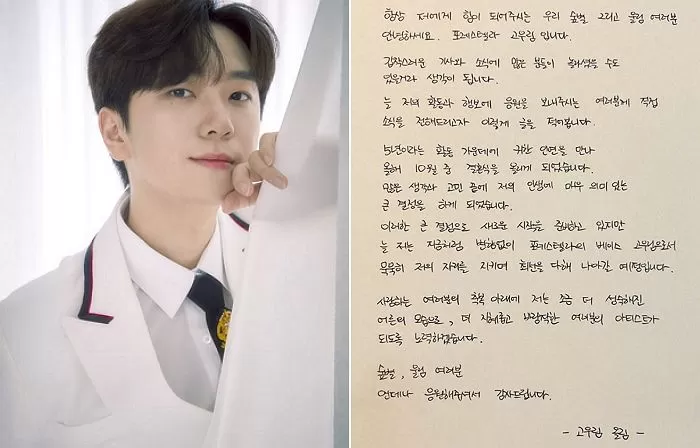 항상 저에게 힘이 되어주시는 우리 숲별 그리고 울림 여러분
안녕하세요. 포레스텔라 고우림입니다.
갑작스러운 기사와 소식에 많은 분들이 놀라셨을 수도
있을거라 생각이 됩니다.
늘 저의 활동과 행보에 응원을 보내주시는 여러분께 직접
소식을 전해드리고자 이렇게 글을 적어봅니다.
5년이라는 활동 가운데에 귀한 인연을 만나
올해 10월 중 결혼식을 올리게 되었습니다.
많은 생각과 고민 끝에 저의 인생에 아주 의미있는
큰 결정을 하게 되었습니다.
이러한 큰 결정으로 새로운 시작을 준비하고 있지만
늘 저는 지금처럼 변함없이 포레스텔라의 베이스 고우림으로서
묵묵히 저의 자리를 지키며 최선을 다해 나아갈 예정입니다.
사랑하는 여러분의 축복 아래에 저는 조금 더 성숙해진
어른의 모습으로, 더 지혜롭고 바람직한 여러분의 아티스트가
되도록 노력하겠습니다.
숲별, 울림 여러분
언제나 응원해주셔서 감사드립니다.
- 고우림 올림 -